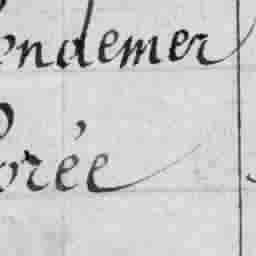 endemer
orée